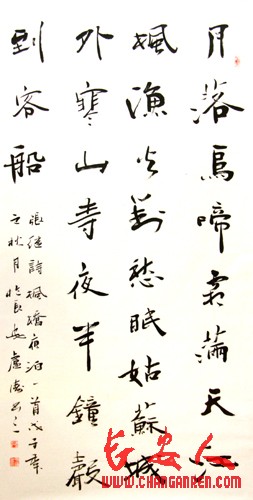 月落烏啼霜滿天江
楓漁火對愁眠姑蘇城
外寒山寺夜半鐘聲
到客船
張继詩楓橋夜泊一首戊子年
之秋月於長安盧
长安人
WWW.CHANGANREN.COM